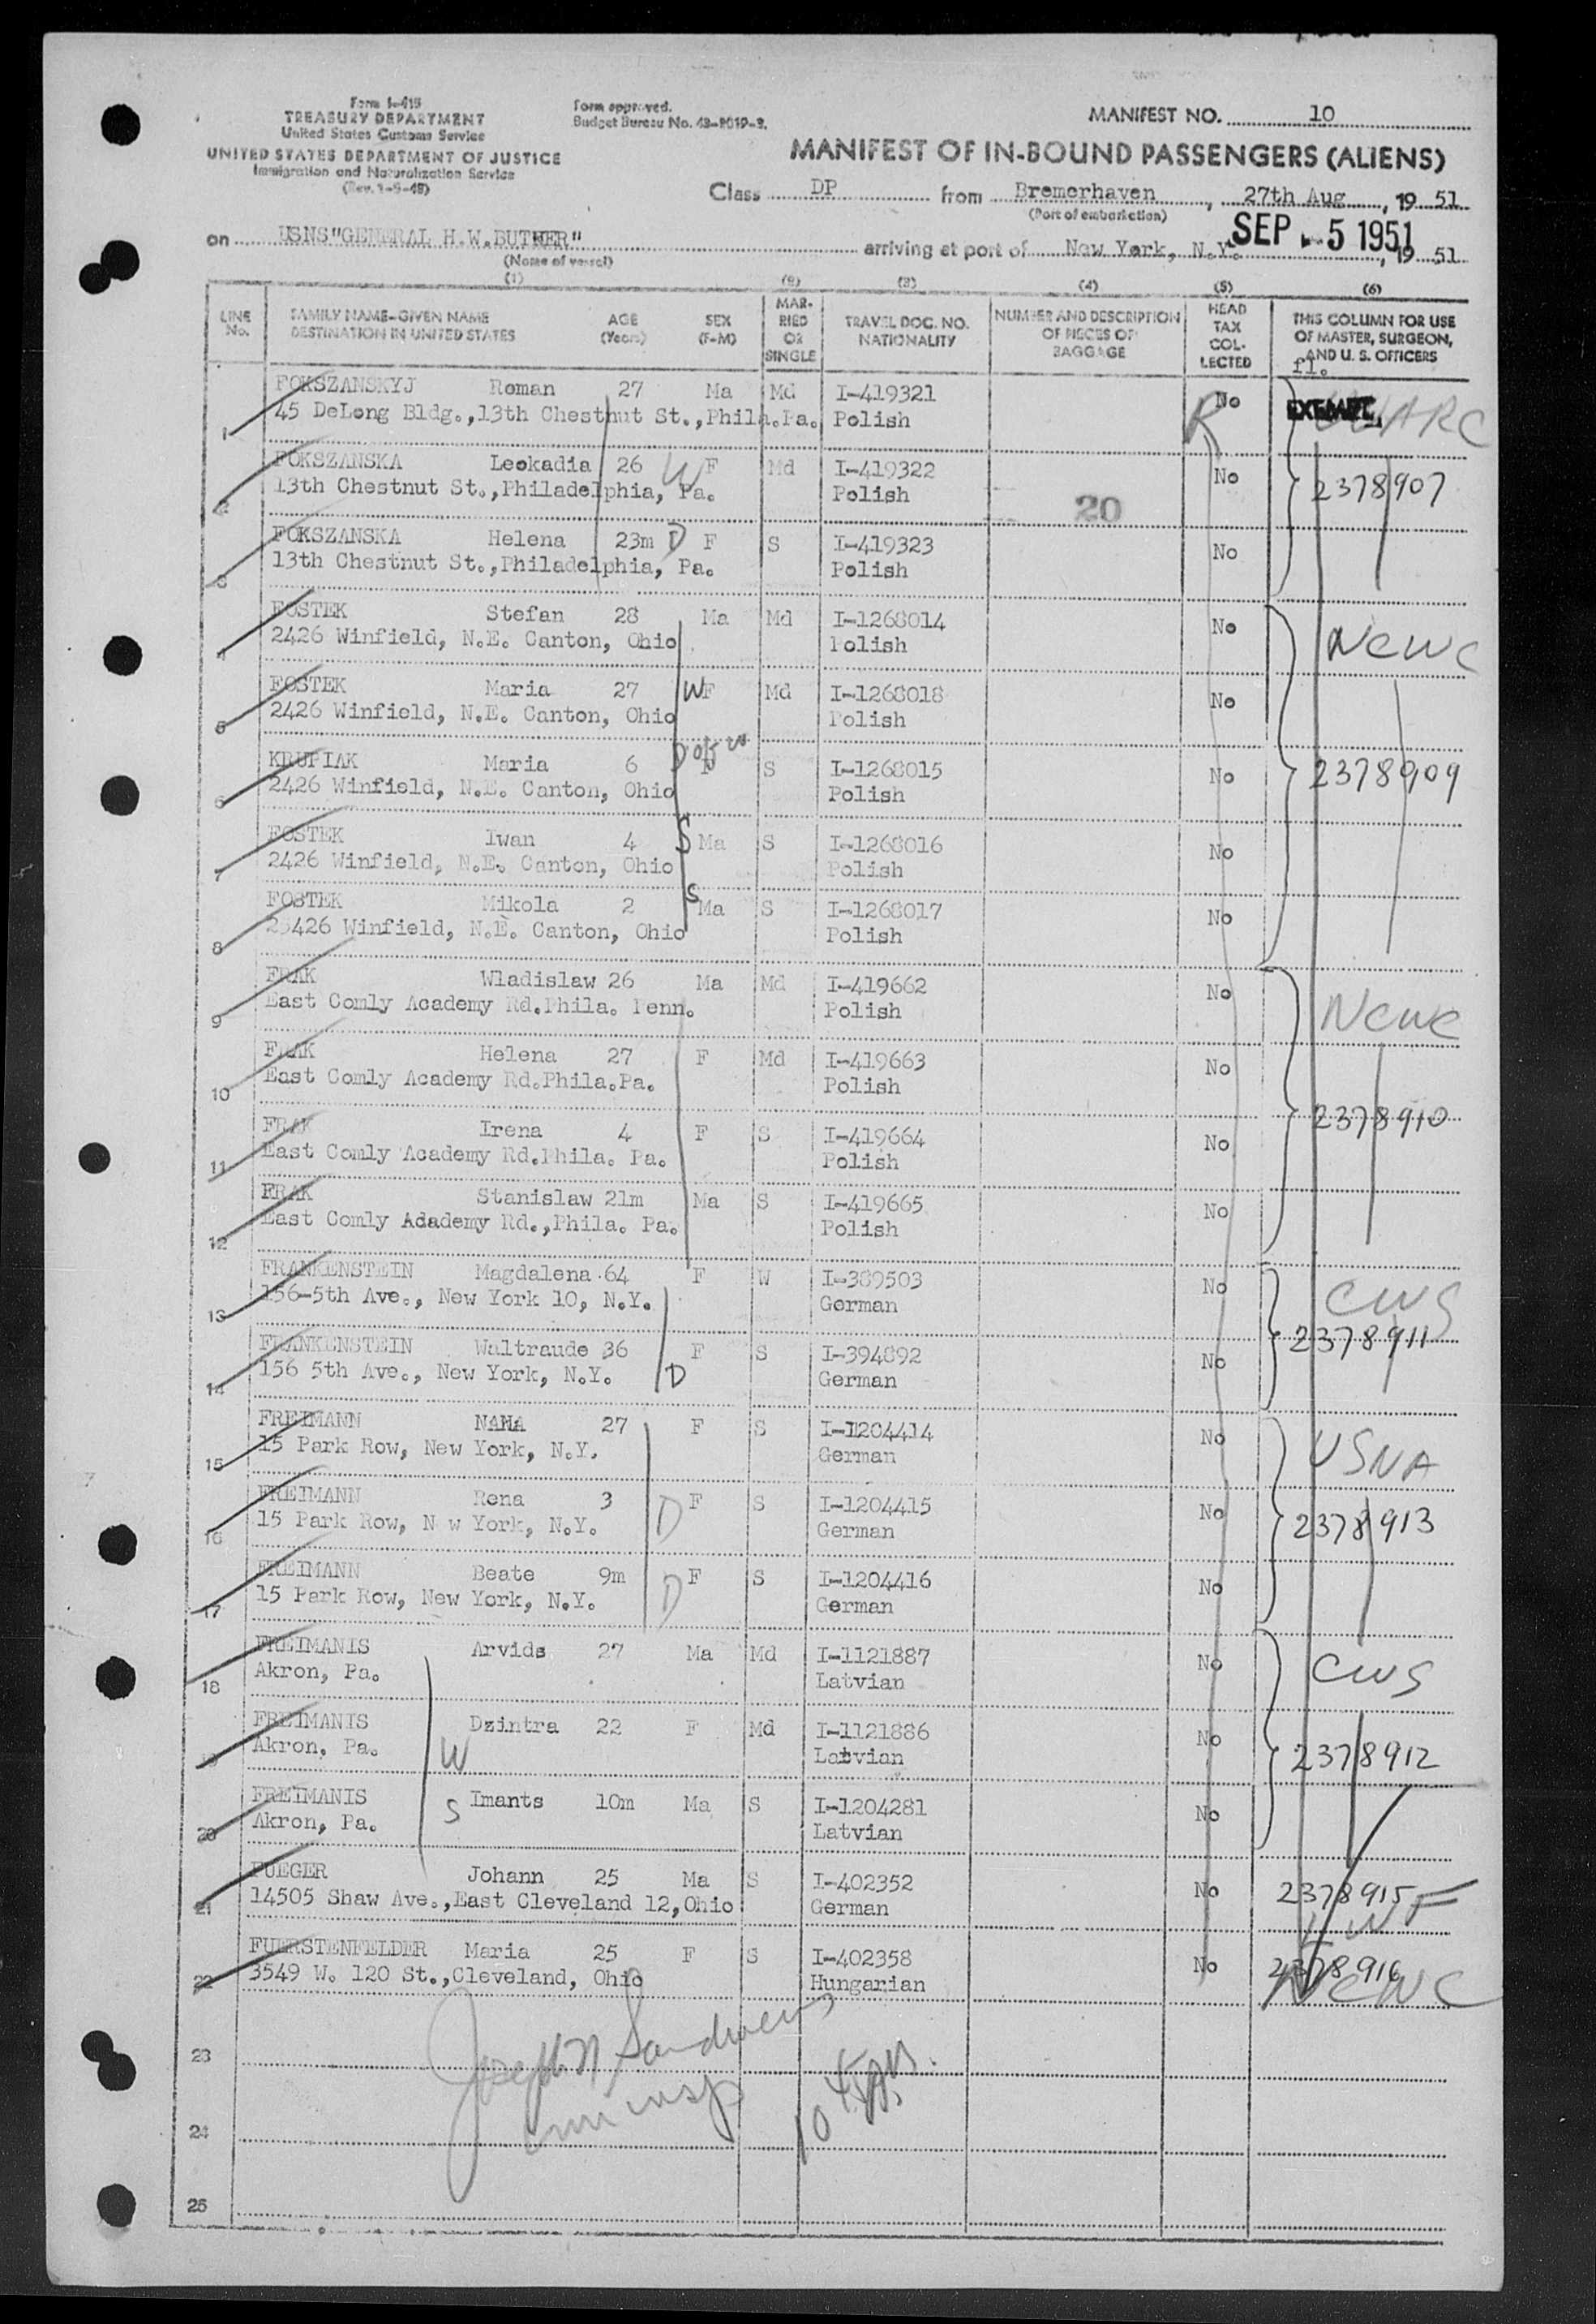 Form I-415
TREASURY DEPARTMENT
United States Customs Service
UNITED STATES DEPARTMENT OF JUSTICE
Immigration and Naturalization Service
(Rev. 1-5-48)
Form approved.
Budget Bureau No. 43-R019-3.
MANIFEST NO. 10
MANIFEST OF IN-BOUND PASSENGERS (ALIENS)
Class DP from Bremerhaven, 27th Aug, 19 51
(Port of embarkation)
on USNS"GENERAL H.W.BUTNER" arriving at port of New York, N.Y. SEP - 5 1951, 19 51
(Name of vessel)
(1) (2) (3) (4) (5) (6)
LINE No. FAMILY NAME-GIVEN NAME DESTINATION IN UNITED STATES AGE (Years) SEX (F-M) MARRIED OR SINGLE TRAVEL DOC. NO. NATIONALITY NUMBER AND DESCRIPTION OF PIECES OF BAGGAGE HEAD TAX COLLECTED THIS COLUMN FOR USE OF MASTER, SURGEON, AND U. S. OFFICERS
fl.
1 FOKSZANSKYJ Roman 27 Ma Md I-419321 R No EXEMPT
45 DeLong Bldg.,13th Chestnut St.,Phila.Pa. Polish
2 FOKSZANSKA Leokadia 26 W F Md I-419322 No 2378907
13th Chestnut St.,Philadelphia, Pa. Polish 20
3 FOKSZANSKA Helena 23m D F S I-419323 No
13th Chestnut St.,Philadelphia, Pa. Polish
4 FOSTEK Stefan 28 Ma Md I-1268014 No NCWC
2426 Winfield, N.E. Canton, Ohio Polish
5 FOSTEK Maria 27 W F Md I-1268018 No
2426 Winfield, N.E. Canton, Ohio Polish
6 KRUPIAK Maria 6 D of W F S I-1268015 No 2378909
2426 Winfield, N.E. Canton, Ohio Polish
7 FOSTEK Iwan 4 S Ma S I-1268016 No
2426 Winfield, N.E. Canton, Ohio Polish
8 FOSTEK Mikola 2 S Ma S I-1268017 No
25426 Winfield, N.E. Canton, Ohio Polish
9 FRAK Wladislaw 26 Ma Md I-419662 No NCWC
East Comly Academy Rd.Phila. Penn. Polish
10 FRAK Helena 27 F Md I-419663 No
East Comly Academy Rd.Phila.Pa. Polish
11 FRAK Irena 4 F S I-419664 No 2378910
East Comly Academy Rd.Phila. Pa. Polish
12 FRAK Stanislaw 21m Ma S I-419665 No
East Comly Adademy Rd.,Phila. Pa. Polish
13 FRANKENSTEIN Magdalena 64 F W I-389503 No CWS
156-5th Ave., New York 10, N.Y. German
14 FRANKENSTEIN Waltraude 36 F S I-394892 No 2378911
156 5th Ave., New York, N.Y. D German
15 FREIMANN NANA 27 F S I-1204414 No USNA
15 Park Row, New York, N.Y. German
16 FREIMANN Rena 3 D F S I-1204415 No 2378913
15 Park Row, N w York, N.Y. German
17 FREIMANN Beate 9m D F S I-1204416 No
15 Park Row, New York, N.Y. German
18 FREIMANIS Arvids 27 Ma Md I-1121887 No CWS
Akron, Pa. Latvian
19 FREIMANIS Dzintra 22 F Md I-1121886 No 2378912
Akron, Pa. W Latvian
20 FREIMANIS Imants 10m Ma S I-1204281 No
Akron, Pa. S Latvian
21 FUEGER Johann 25 Ma S I-402352 No 2378915
14505 Shaw Ave.,East Cleveland 12,Ohio German LWF
22 FUERSTENFELDER Maria 25 F S I-402358 No 2378916
3549 W. 120 St.,Cleveland, Ohio Hungarian NCWC
23
24
25